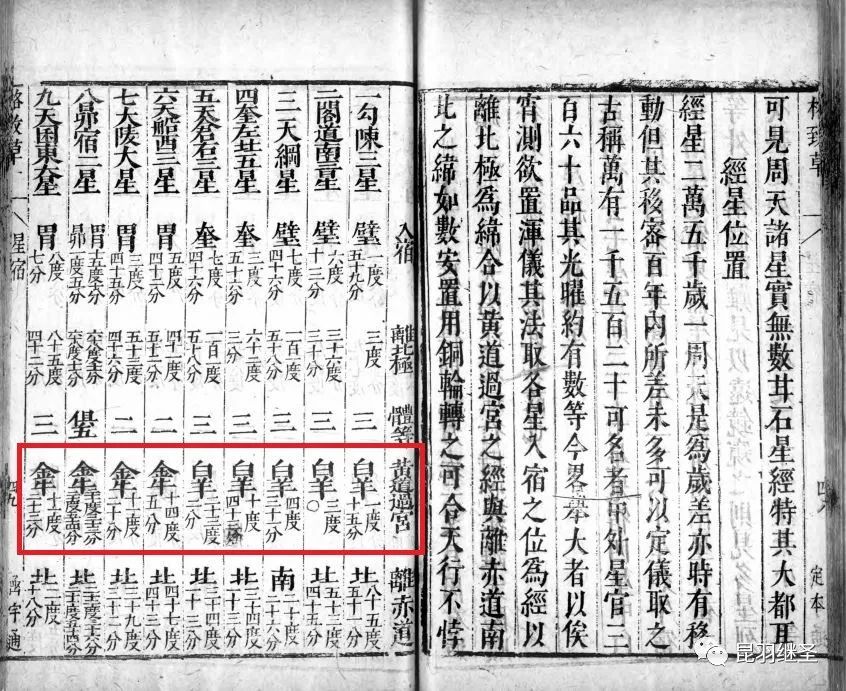 格致草
定本
可見周天諸星實無數甘石星經特其大都耳
經星位置
經星二萬五千歲一周天是為歲差亦時有移
動但其移審百年內所差未多可以定儀取之
古稱萬有一千五百二十可名者中外星官三
百六十品其光曜約有數等今畧舉大者以俟
宵測欲置渾儀其法取各星入宿之位為經以
離北極為緯合以黃道過宮之經與離赤道南
北之緯如數安置用銅輪轉之可合天行不悖
入宿 離北極 體等 黃道過宮 離赤道
一勾陳三星 壁 一度五十九分 三度 三 白羊 一度十五分 北 八十五度
二閣道南三星 壁 六度十三分 三十六度三十分 三 白羊 三度〇 北
三天綱星 壁 七度四十六分 三 白羊 四度三十六分 南 二十度
四奎左北五星 奎 三度五十六分 六十二度三分 三 白羊 十度四十三分 北 三十四度
五天倉右三星 奎 七度 一百度五十八分 三 白羊 二十三度 北
六天船西三星 胃 五度 四十一度五十二分 二 金牛 十四度五分 北 四十七度四十三分
七大陵大星 胃 三度四十五分 二 金牛 十一度二十分 北 三十九度三十二分
八昴宿二星 胃 昴 金牛 北
九天囷東大星 胃 八度七分 八十五度四十二分 三 金牛 十一度二十三分 北 二度十八分
格致草 星宿 四九 函宇通
昆羽继圣